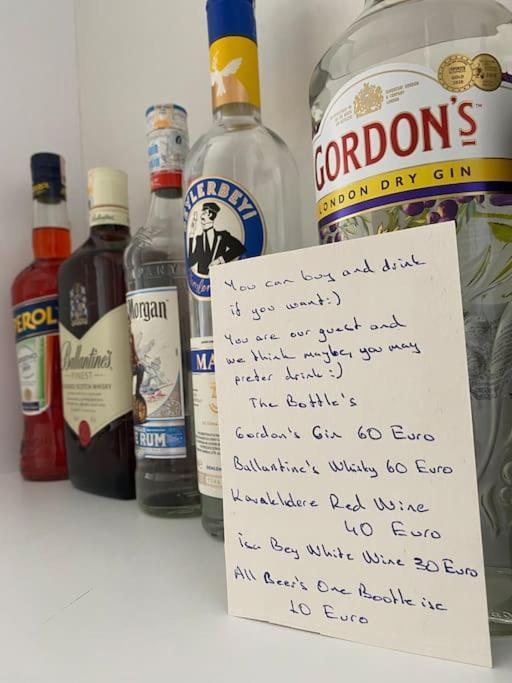 GORDON'S
LONDON DRY GIN
YLERBEYI
MA
Morgan
RUM
Ballantine's
FINEST
SCOTCH WHISKY
PEROL
You can buy and drink
if you want:)
You are our guest and
we think maybe, you may
prefer drink:)
The Bottle's
Gordon's Gin 60 Euro
Ballantine's Whisky 60 Euro
Kavaklıdere Red Wine
40 Euro
isa Bey White Wine 30 Euro
All Beer's One Bootle ise
10 Euro